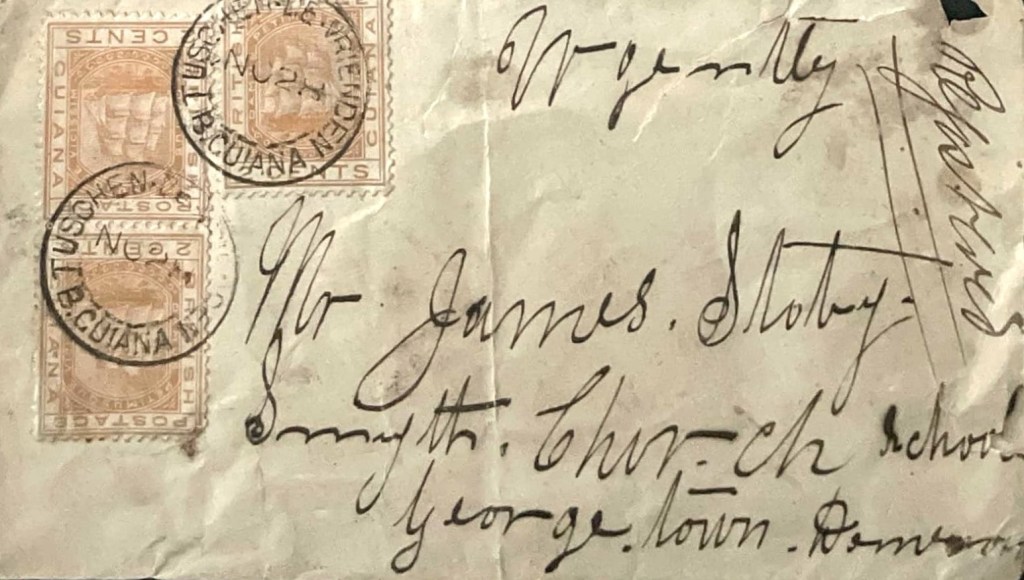 Urgently
Mr James. Stoby.
Smyth. Chor-ch School
George. town. Demerara
TUSCHEN-DE-VRIENDEN
NO 2
B.GUIANA
CENTS
GUIANA
POSTAGE
TUSCHEN-DE
NO 2
B.GUIANA
2 CENTS
POSTAGE